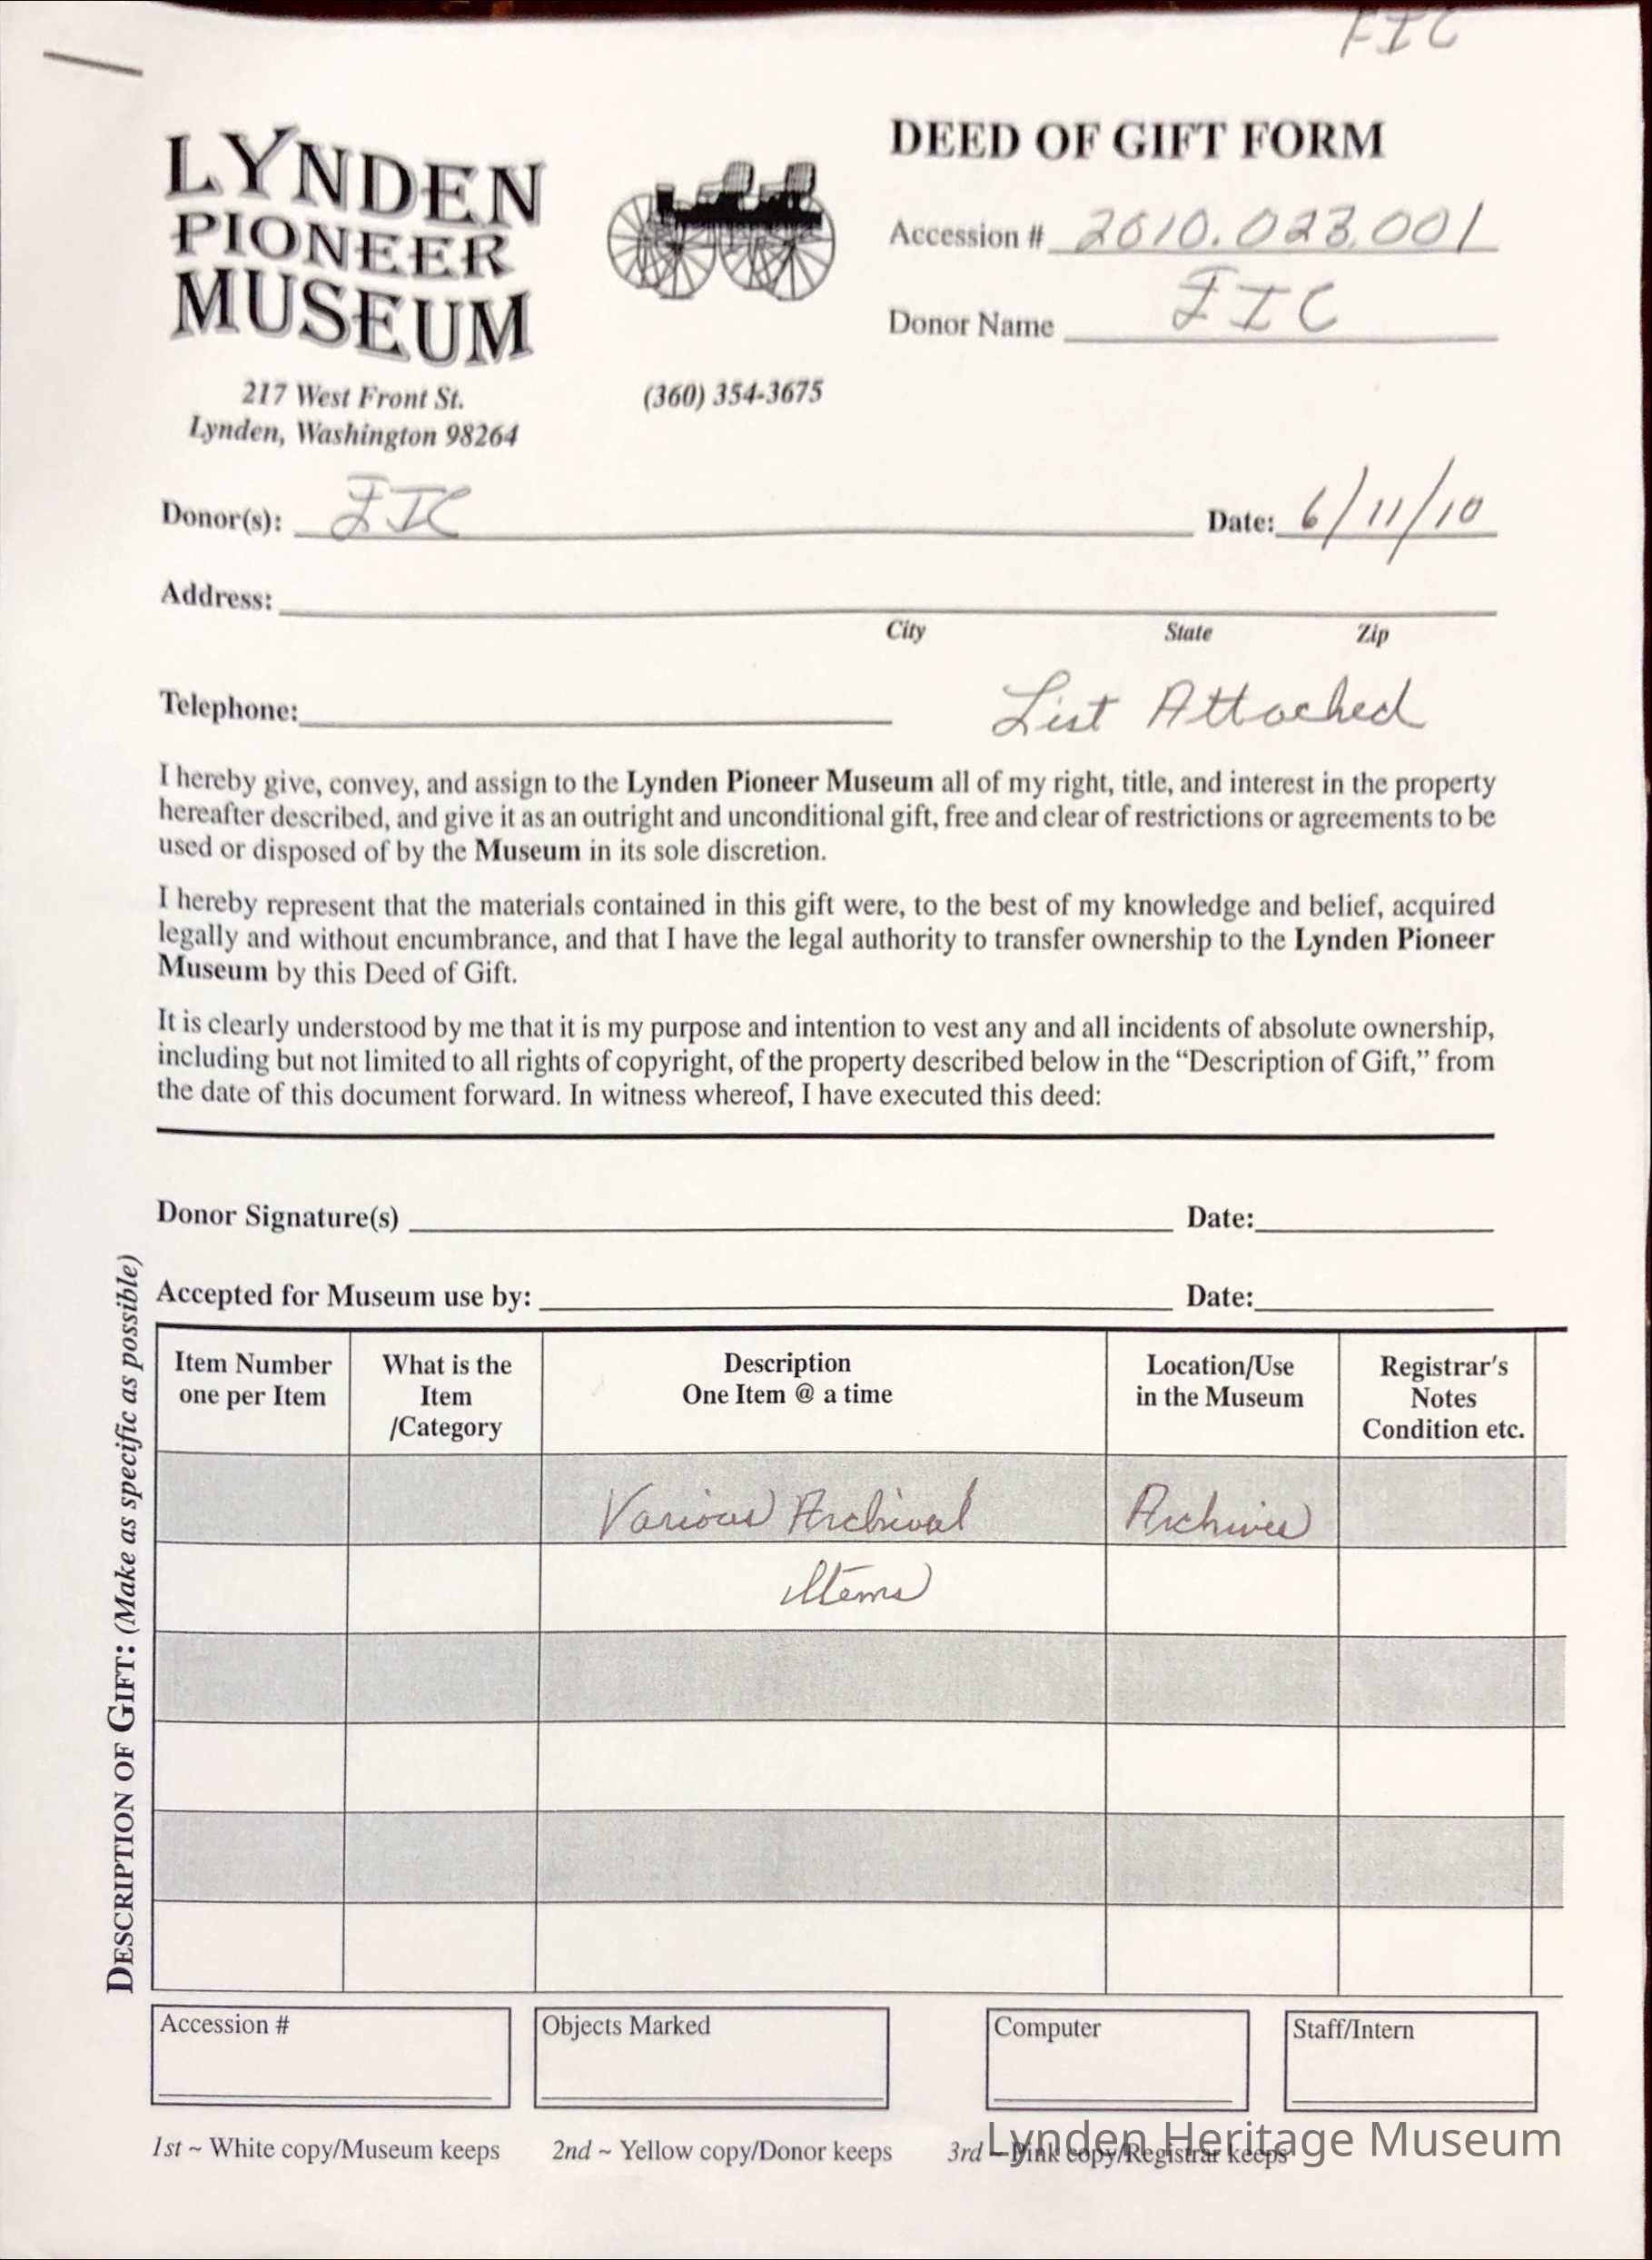 FIC
LYNDEN
PIONEER
MUSEUM
217 West Front St.
Lynden, Washington 98264
(360) 354-3675
DEED OF GIFT FORM
Accession # 2010.023.001
Donor Name FIC
Donor(s): FIC Date: 6/11/10
Address:
City State Zip
Telephone: List Attached
I hereby give, convey, and assign to the Lynden Pioneer Museum all of my right, title, and interest in the property
hereafter described, and give it as an outright and unconditional gift, free and clear of restrictions or agreements to be
used or disposed of by the Museum in its sole discretion.
I hereby represent that the materials contained in this gift were, to the best of my knowledge and belief, acquired
legally and without encumbrance, and that I have the legal authority to transfer ownership to the Lynden Pioneer
Museum by this Deed of Gift.
It is clearly understood by me that it is my purpose and intention to vest any and all incidents of absolute ownership,
including but not limited to all rights of copyright, of the property described below in the “Description of Gift,” from
the date of this document forward. In witness whereof, I have executed this deed:
Donor Signature(s) Date:
Accepted for Museum use by: Date:
DESCRIPTION OF GIFT: (Make as specific as possible)
Item Number What is the Description Location/Use Registrar's
one per Item Item One Item @ a time in the Museum Notes
/Category Condition etc.
Various Archival Archives
Items
Accession # Objects Marked Computer Staff/Intern
1st ~ White copy/Museum keeps 2nd ~ Yellow copy/Donor keeps 3rd ~ Pink copy/Registrar keeps
Lynden Heritage Museum